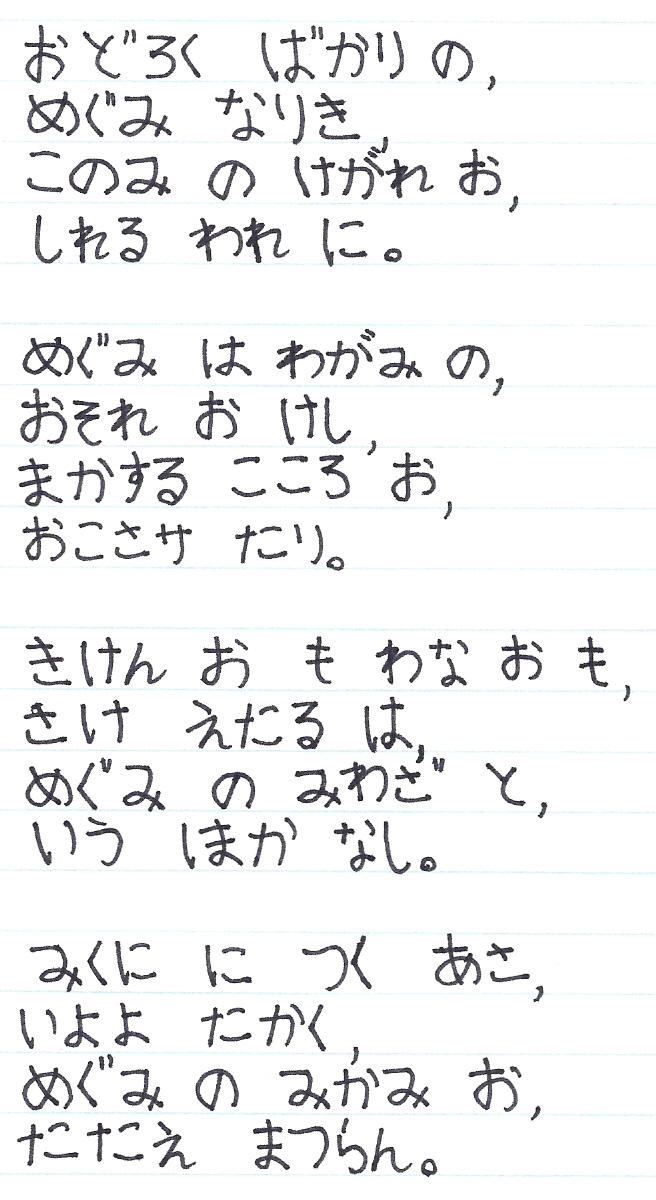 おどろく ばかり の,
めぐみ なりき,
このみ の けがれ お,
しれる われ に。
めぐみ は わがみ の,
おそれ お けし,
まかする こころ お,
おこさサ たり。
きけん お も わな お も,
さけ えたる は,
めぐみ の みわざ と,
いう ほか なし。
みくに に つく あさ,
いよよ たかく,
めぐみ の みかみ お,
たたえ まつらん。